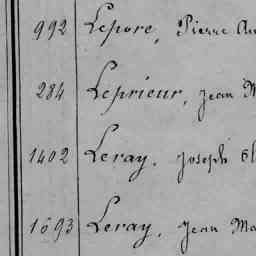 992 Lepore, Pierre
284 Leprieur, Jean M
1402 Leray, Joseph
1693 Leray, Jean Ma